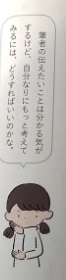 筆者の伝えたいことは分かる気が
するけど、自分なりにもっと考えて
みるには、どうすればいいのかな。